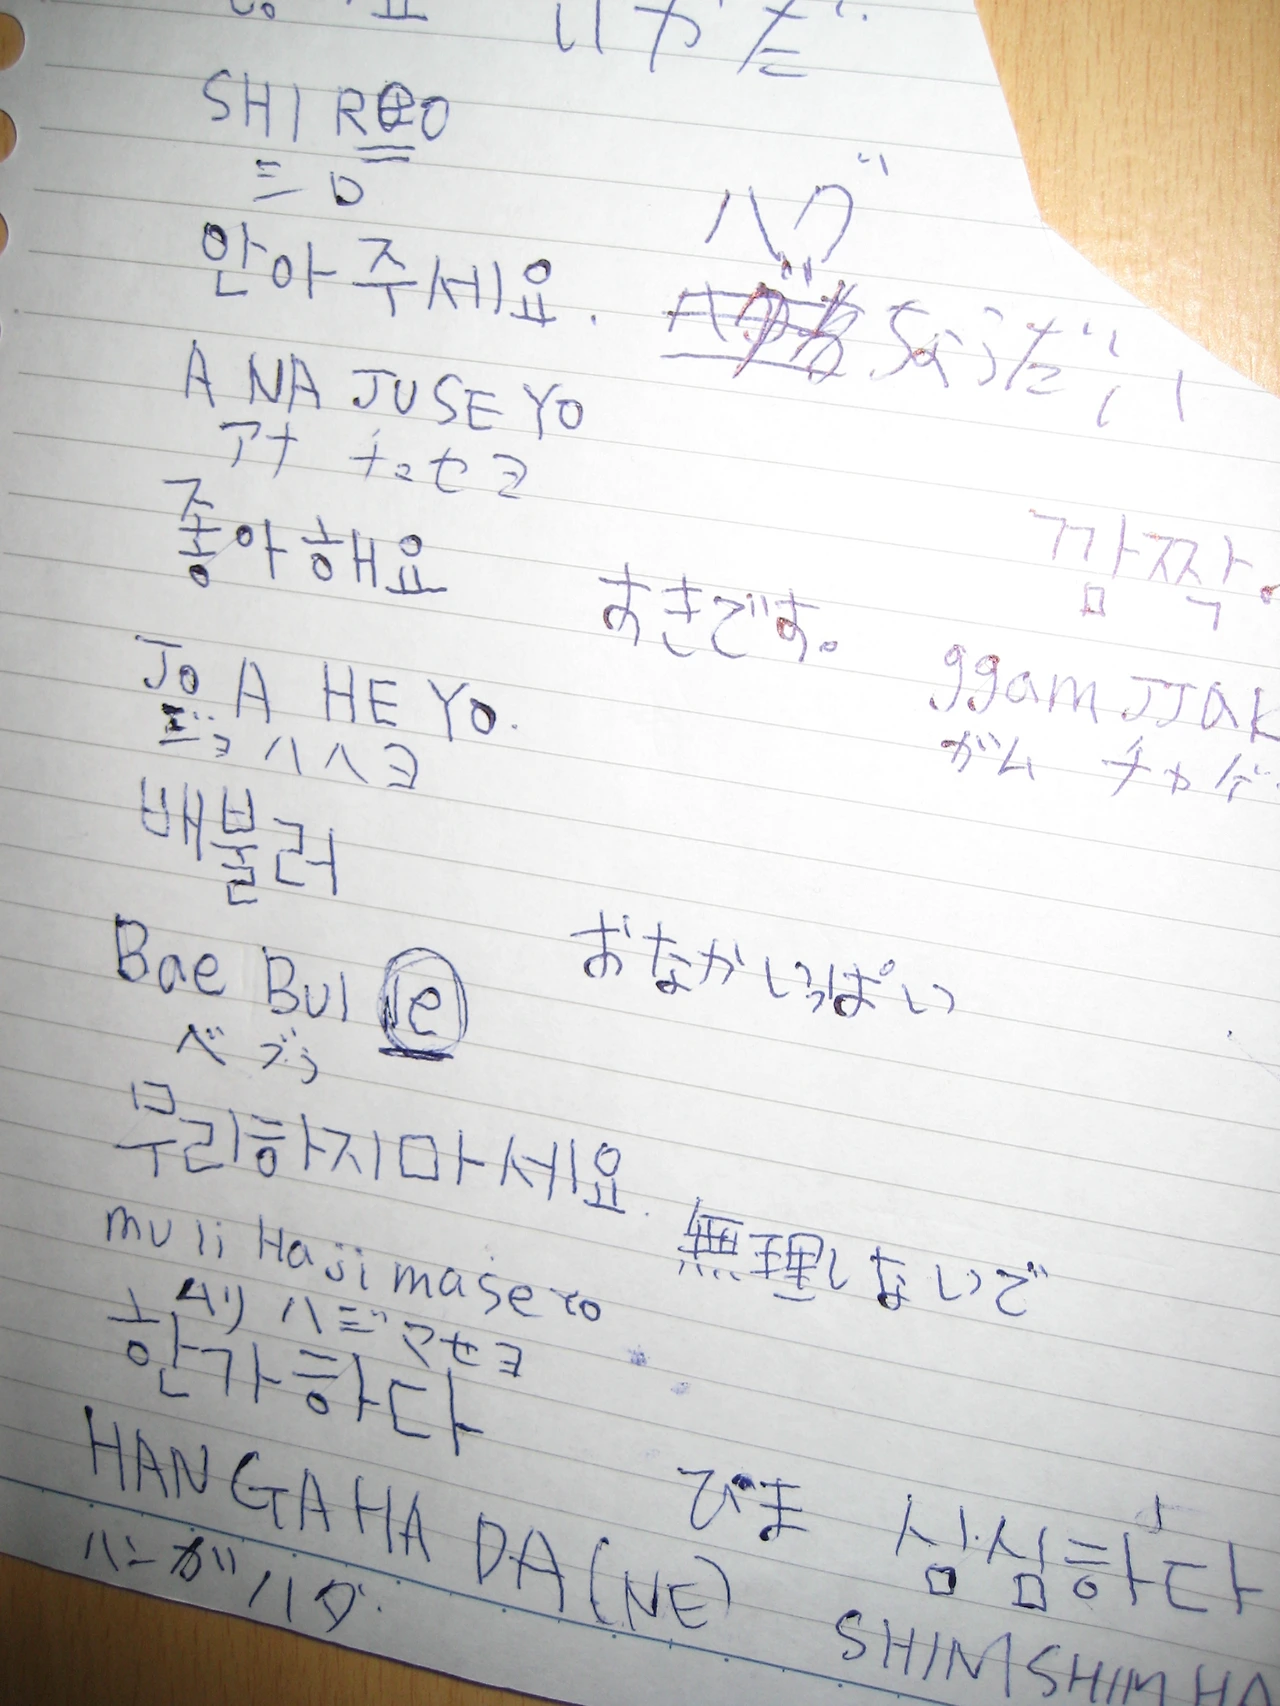 いやだ
SHIREO
シロ
안아주세요.
ハグ
ちょうだい
A NA JUSEYO
アナ チュセヨ
좋아해요
すきです。
깜짝
JO A HE YO.
ジョアハヘヨ
ggam JJak
ガム チャグ
배불러
Bae Bul le
おなかいっぱい
ベ ブラ
무리하지마세요.
muli Hajimaseyo
無理しないで
ムリ ハジマセヨ
한가하다
HAN GA HA DA (NE)
ひま
심심하다
ハンガハダ
SHIMSHIM HA